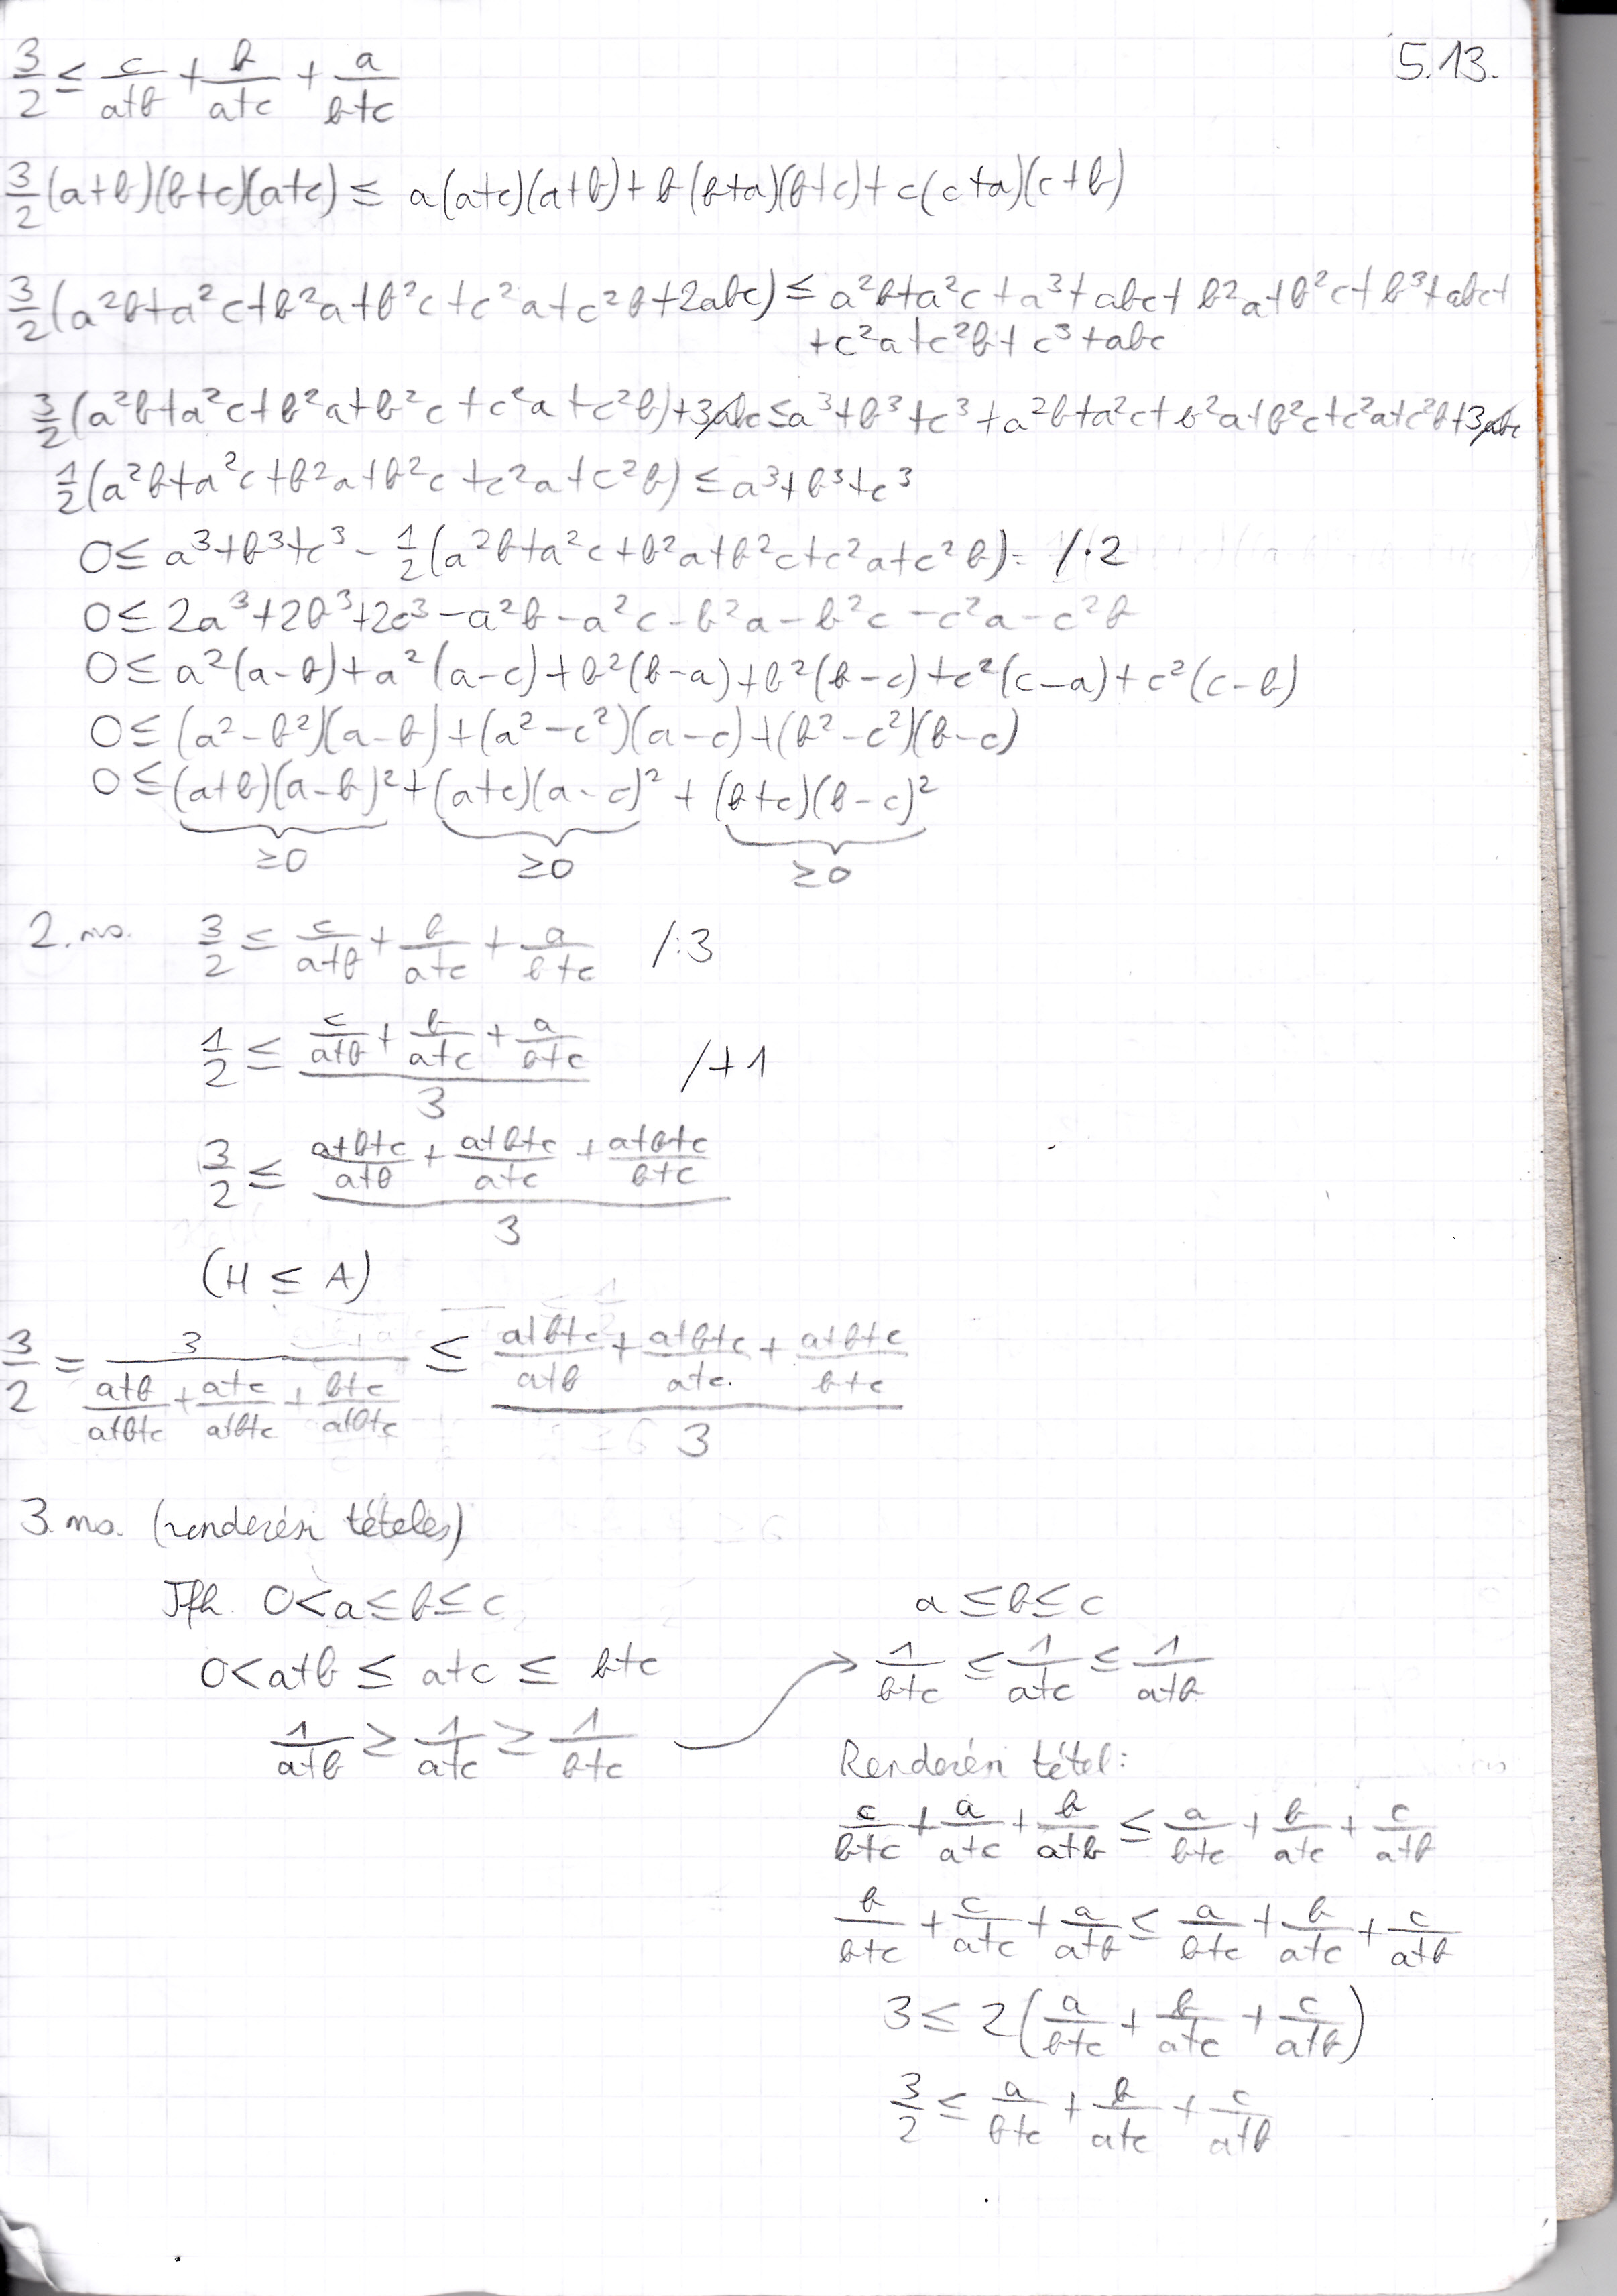 5.13.
3/2 ≤ c/(a+b) + b/(a+c) + a/(b+c)
3/2 (a+b)(b+c)(a+c) ≤ a(a+c)(a+b) + b(b+a)(b+c) + c(c+a)(c+b)
3/2 (a²b+a²c+b²a+b²c+c²a+c²b+2abc) ≤ a²b+a²c+a³+abc+b²a+b²c+b³+abc+
+c²a+c²b+c³+abc
3/2 (a²b+a²c+b²a+b²c+c²a+c²b)+3abc ≤ a³+b³+c³+a²b+a²c+b²a+b²c+c²a+c²b+3abc
1/2 (a²b+a²c+b²a+b²c+c²a+c²b) ≤ a³+b³+c³
0 ≤ a³+b³+c³ - 1/2 (a²b+a²c+b²a+b²c+c²a+c²b) /·2
0 ≤ 2a³+2b³+2c³-a²b-a²c-b²a-b²c-c²a-c²b
0 ≤ a²(a-b)+a²(a-c)+b²(b-a)+b²(b-c)+c²(c-a)+c²(c-b)
0 ≤ (a²-b²)(a-b)+(a²-c²)(a-c)+(b²-c²)(b-c)
0 ≤ (a+b)(a-b)²+(a+c)(a-c)²+(b+c)(b-c)²
≥0 ≥0 ≥0
2. mo. 3/2 ≤ c/(a+b) + b/(a+c) + a/(b+c) /:3
1/2 ≤ (c/(a+b) + b/(a+c) + a/(b+c))/3 /+1
3/2 ≤ ((a+b+c)/(a+b) + (a+b+c)/(a+c) + (a+b+c)/(b+c))/3
(H ≤ A)
3/2 = 3/((a+b)/(a+b+c) + (a+c)/(a+b+c) + (b+c)/(a+b+c)) ≤ ((a+b+c)/(a+b) + (a+b+c)/(a+c) + (a+b+c)/(b+c))/3
3. mo. (rendezési tételes)
Tfh. 0<a≤b≤c
0<a+b ≤ a+c ≤ b+c
1/(a+b) ≥ 1/(a+c) ≥ 1/(b+c)
a≤b≤c
1/(b+c) ≤ 1/(a+c) ≤ 1/(a+b)
Rendezési tétel:
c/(b+c) + a/(a+c) + b/(a+b) ≤ a/(b+c) + b/(a+c) + c/(a+b)
b/(b+c) + c/(a+c) + a/(a+b) ≤ a/(b+c) + b/(a+c) + c/(a+b)
3 ≤ 2(a/(b+c) + b/(a+c) + c/(a+b))
3/2 ≤ a/(b+c) + b/(a+c) + c/(a+b)